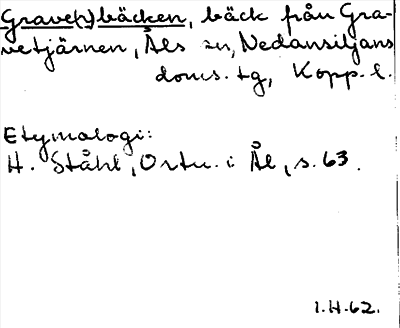 Grave(n)bäcken, bäck från Gra-
vetjärnen, Åls sn, Nedansiljans
doms. tg, Kopp. l.
Etymologi:
H. Ståhl, Ortn. i Ål, s. 63.
1.H.62.